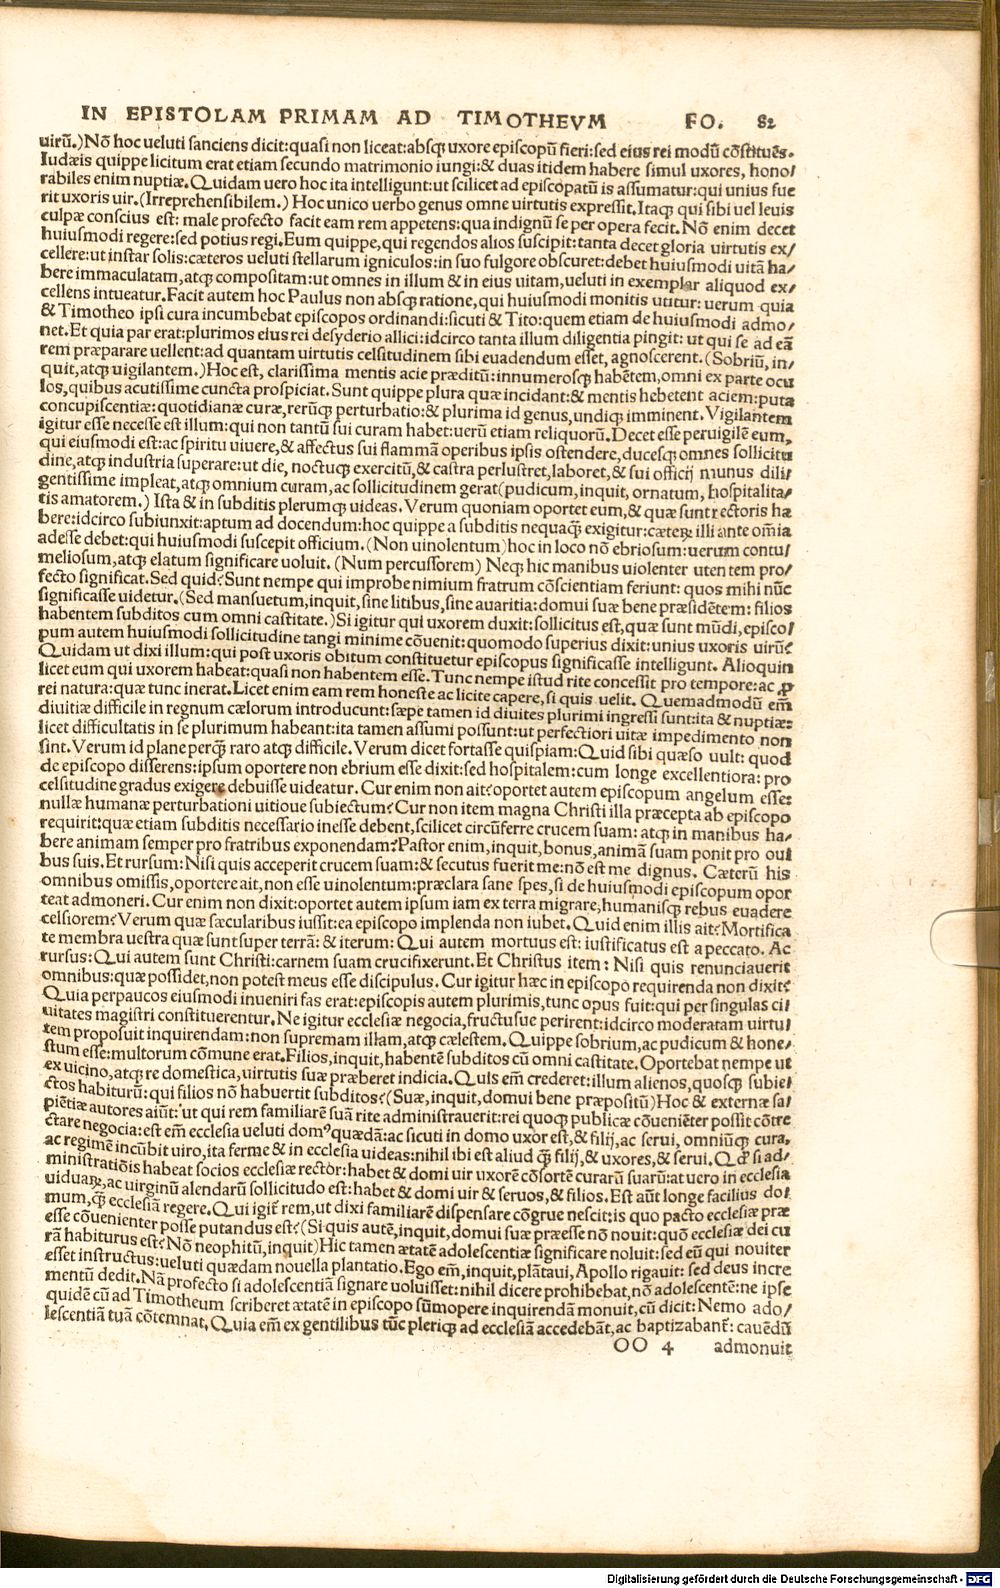 IN EPISTOLAM PRIMAM AD TIMOTHEVM FO. 82
uirū.)Nō hoc ueluti sanciens dicit:quasi non liceat:absqꝫ uxore episcopū fieri:sed eius rei modū cōstituēs.
Iudæis quippe licitum erat etiam secundo matrimonio iungi:& duas itidem habere simul uxores, hono/
rabiles enim nuptiæ.Quidam uero hoc ita intelligunt:ut scilicet ad episcopatū is assumatur:qui unius fue
rit uxoris uir.(Irreprehensibilem.) Hoc unico uerbo genus omne uirtutis expressit.Itaqꝫ qui sibi uel leuis
culpæ conscius est: male profecto facit eam rem appetens:qua indignū se per opera fecit.Nō enim decet
huiusmodi regere:sed potius regi.Eum quippe,qui regendos alios suscipit:tanta decet gloria uirtutis ex/
cellere:ut instar solis:cæteros ueluti stellarum igniculos:in suo fulgore obscuret:debet huiusmodi uitā ha/
bere immaculatam,atqꝫ compositam:ut omnes in illum & in eius uitam,ueluti in exemplar aliquod ex/
cellens intueatur.Facit autem hoc Paulus non absqꝫ ratione,qui huiusmodi monitis utitur: uerum quia
& Timotheo ipsi cura incumbebat episcopos ordinandi:sicuti & Tito:quem etiam de huiusmodi admo/
net.Et quia par erat:plurimos eius rei desyderio allici:idcirco tanta illum diligentia pingit: ut qui se ad eā
rem præparare uellent:ad quantam uirtutis celsitudinem sibi euadendum esset, agnoscerent.(Sobriū, in/
quit,atqꝫ uigilantem.)Hoc est, clarissima mentis acie præditū:innumerosqꝫ habētem,omni ex parte ocu
los,quibus acutissime cuncta prospiciat.Sunt quippe plura quæ incidant:& mentis hebetent aciem:puta
concupiscentiæ:quotidianæ curæ,rerūqꝫ perturbatio:& plurima id genus,undiqꝫ imminent.Vigilantem
igitur esse necesse est illum:qui non tantū sui curam habet:uerū etiam reliquorū.Decet esse peruigilē eum,
qui eiusmodi est:ac spiritu uiuere,& affectus sui flammā operibus ipsis ostendere,ducesqꝫ omnes sollicitu
dine,atqꝫ industria superare:ut die, noctuqꝫ exercitū,& castra perlustret,laboret,& sui officij munus dili/
gentissime impleat,atqꝫ omnium curam,ac sollicitudinem gerat(pudicum,inquit, ornatum, hospitalita/
tis amatorem.) Ista & in subditis plerumqꝫ uideas. Verum quoniam oportet eum,& quæ sunt rectoris ha
bere:idcirco subiunxit:aptum ad docendum:hoc quippe a subditis nequaqꝫ̄ exigitur:cæteꝝ illi ante oīa
adesse debet:qui huiusmodi suscepit officium.(Non uinolentum)hoc in loco nō ebriosum:uerum contu/
meliosum,atqꝫ elatum significare uoluit. (Num percussorem) Neqꝫ hic manibus uiolenter utentem pro/
fecto significat.Sed quid?Sunt nempe qui improbe nimium fratrum cōscientiam feriunt: quos mihi nūc
significasse uidetur.(Sed mansuetum,inquit,sine litibus,sine auaritia:domui suæ bene præsidētem: filios
habentem subditos cum omni castitate.)Si igitur qui uxorem duxit:sollicitus est,quæ sunt mūdi,episco/
pum autem huiusmodi sollicitudine tangi minime cōuenit:quomodo superius dixit:unius uxoris uirū?
Quidam ut dixi illum:qui post uxoris obitum constituetur episcopus significasse intelligunt. Alioquin
licet eum qui uxorem habeat:quasi non habentem esse.Tunc nempe istud rite concessit pro tempore:ac ꝓ
rei natura:quæ tunc inerat.Licet enim eam rem honeste ac licite capere,si quis uelit. Quemadmodū em̄
diuitiæ difficile in regnum cælorum introducunt:sæpe tamen id diuites plurimi ingressi sunt:ita & nuptiæ:
licet difficultatis in se plurimum habeant:ita tamen assumi possunt:ut perfectiori uitæ impedimento non
sint.Verum id plane perqꝫ̄ raro atqꝫ difficile.Verum dicet fortasse quispiam:Quid sibi quæso uult: quod
de episcopo disserens:ipsum oportere non ebrium esse dixit:sed hospitalem:cum longe excellentiora: pro
celsitudine gradus exigere debuisse uideatur. Cur enim non ait?oportet autem episcopum angelum esse:
nullæ humanæ perturbationi uitioue subiectum?Cur non item magna Christi illa præcepta ab episcopo
requirit:quæ etiam subditis necessario inesse debent,scilicet circūferre crucem suam: atqꝫ in manibus ha/
bere animam semper pro fratribus exponendam?Pastor enim,inquit,bonus,animā suam ponit pro oui
bus suis.Et rursum:Nisi quis acceperit crucem suam:& secutus fuerit me:nō est me dignus. Cæterū his
omnibus omissis,oportere ait,non esse uinolentum:præclara sane spes,si de huiusmodi episcopum opor
teat admoneri.Cur enim non dixit:oportet autem ipsum iam ex terra migrare,humanisqꝫ rebus euadere
celsiorem?Verum quæ sæcularibus iussit:ea episcopo implenda non iubet.Quid enim illis ait?Mortifica
te membra uestra quæ sunt super terrā: & iterum: Qui autem mortuus est: iustificatus est a peccato. Ac
rursus:Qui autem sunt Christi:carnem suam crucifixerunt.Et Christus item: Nisi quis renunciauerit
omnibus:quæ possidet,non potest meus esse discipulus. Cur igitur hæc in episcopo requirenda non dixit?
Quia perpaucos eiusmodi inueniri fas erat:episcopis autem plurimis,tunc opus fuit:qui per singulas ci/
uitates magistri constituerentur.Ne igitur ecclesiæ negocia,fructusue perirent:idcirco moderatam uirtu/
tem proposuit inquirendam:non supremam illam,atqꝫ cælestem.Quippe sobrium,ac pudicum & hone/
stum esse:multorum cōmune erat.Filios,inquit,habentē subditos cū omni castitate.Oportebat nempe ut
ex uicino,atqꝫ re domestica,uirtutis suæ præberet indicia.Quis em̄ crederet:illum alienos,quosqꝫ subie/
ctos habiturū:qui filios nō habuerit subditos?(Suæ,inquit,domui bene præpositū)Hoc & externæ sa/
piētiæ autores aiūt:ut qui rem familiarē suā rite administrauerit:rei quoqꝫ publicæ cōueniēter possit cōtre
ctare negocia:est em̄ ecclesia ueluti domꝰ quædā:ac sicuti in domo uxor est,& filij,ac serui, omniūqꝫ cura,
ac regimē incūbit uiro,ita ferme & in ecclesia uideas:nihil ibi est aliud qꝫ̄ filij,& uxores,& serui.Qꝺ si ad/
ministratiōis habeat socios ecclesiæ rector:habet & domi uir uxorē cōsortē curarū suarū:at uero in ecclesia
uiduaꝝ,ac uirginū alendarū sollicitudo est:habet & domi uir & seruos,& filios.Est aūt longe facilius do/
mum,qꝫ̄ ecclesiā regere.Qui igit̄ rem,ut dixi familiarē dispensare cōgrue nescit:is quo pacto ecclesiæ præ
esse cōuenienter posse putandus est?(Si quis autē,inquit,domui suæ præesse nō nouit:quō ecclesiæ dei cu
rā habiturus est?Nō neophitū,inquit)Hic tamen ætatē adolescentiæ significare noluit:sed eū qui nouiter
esset instructus:ueluti quædam nouella plantatio.Ego em̄,inquit,plātaui,Apollo rigauit: sed deus incre
mentū dedit.Nā profecto si adolescentiā signare uoluisset:nihil dicere prohibebat,nō adolescentē:ne ipse
quidē cū ad Timotheum scriberet ætatē in episcopo sūmopere inquirendā monuit,cū dicit: Nemo ado/
lescentiā tuā cōtemnat.Quia em̄ ex gentilibus tūc pleriqꝫ ad ecclesiā accedebāt,ac baptizabant̄: cauēdū
OO 4 admonuit
Digitalisierung gefördert durch die Deutsche Forschungsgemeinschaft - DFG